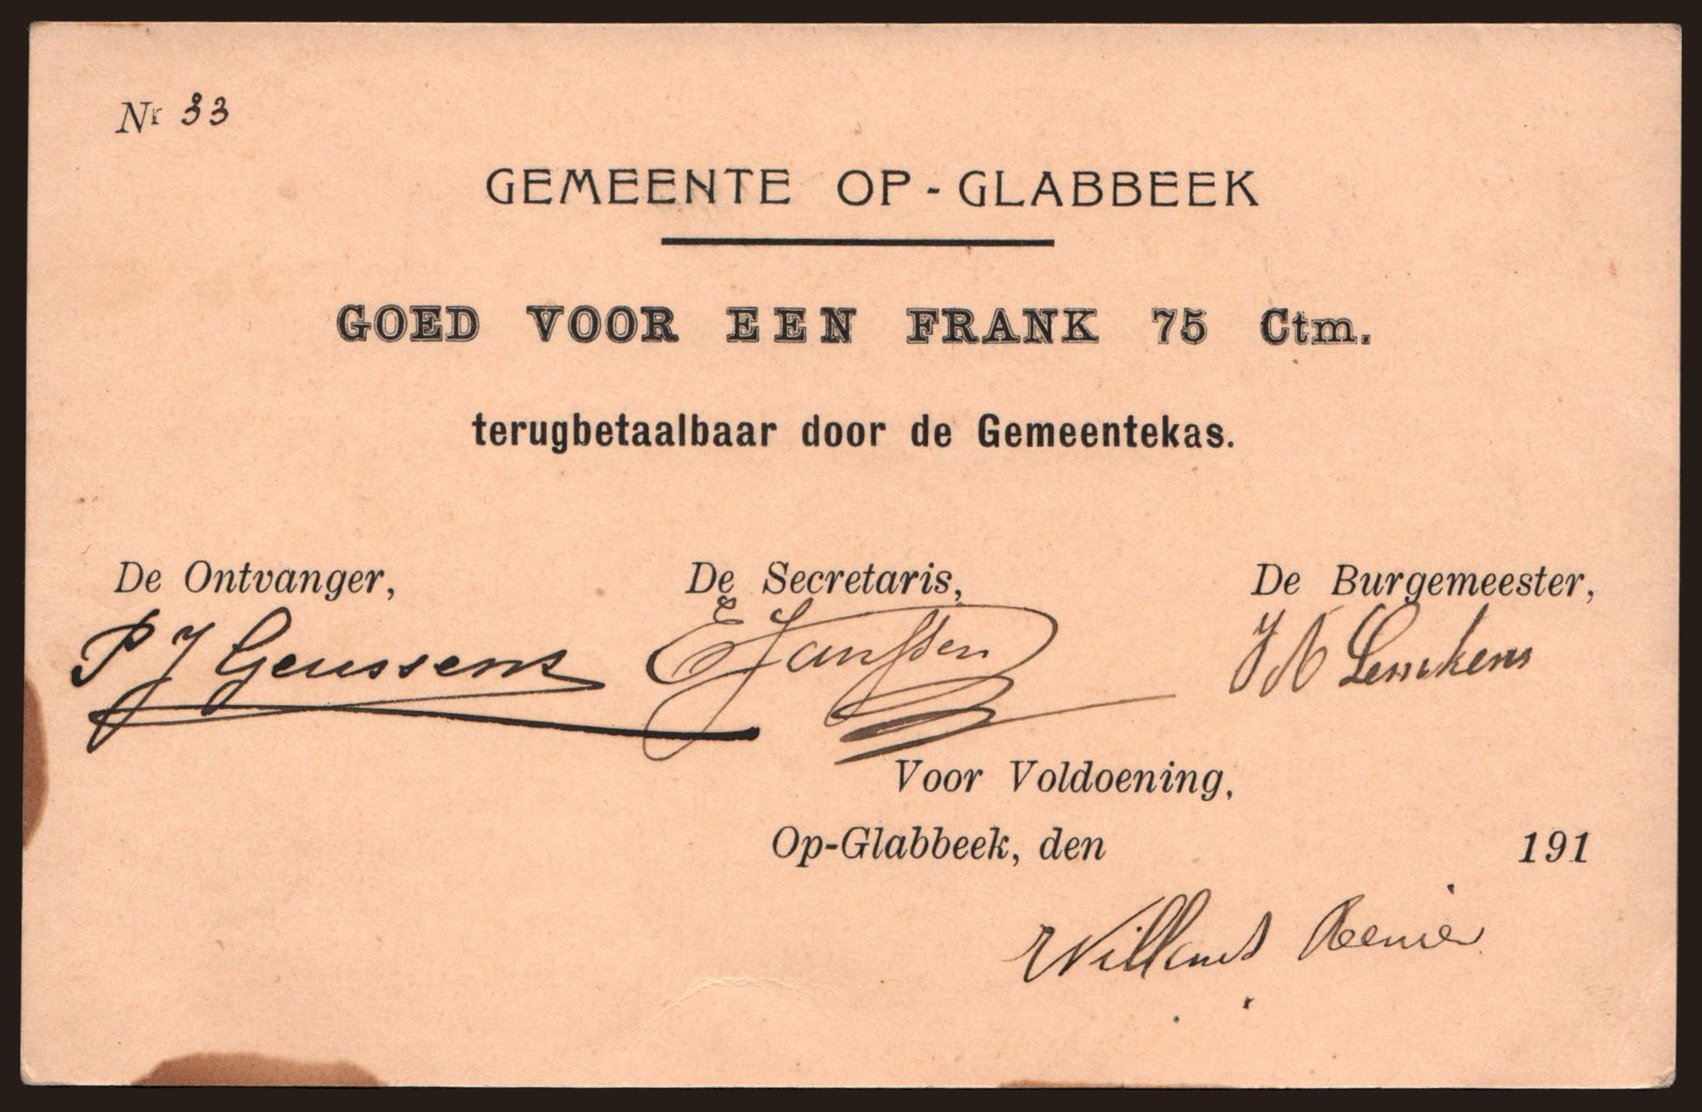 Nr 33
GEMEENTE OP-GLABBEEK
GOED VOOR EEN FRANK 75 Ctm.
terugbetaalbaar door de Gemeentekas.
De Ontvanger, De Secretaris, De Burgemeester,
P J Geussens E Janssen
Voor Voldoening,
Op-Glabbeek, den 191
Willems Renier